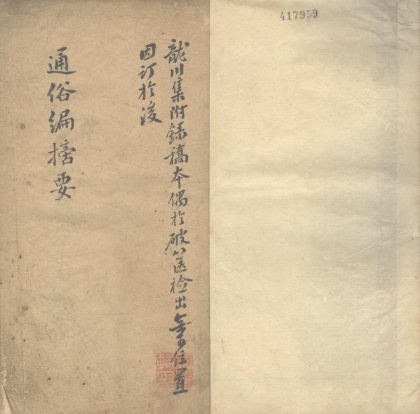 龍川集附錄稿本偶於破篋檢出
因訂於後
通俗編摘要
417959